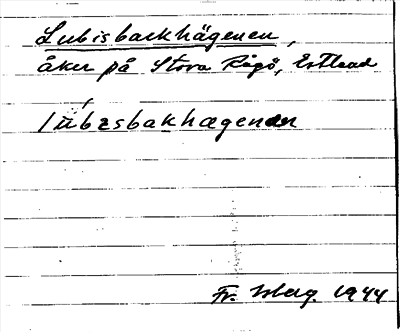 Lubisbackhägenen,
åker på Stora Rågö, Estland
lúbɪsbakhægenən
Fr. Isberg. 1944